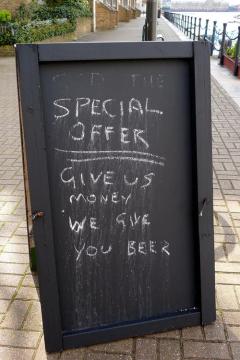 THE
SPECIAL
OFFER
GIVE US
MONEY
WE GIVE
YOU BEER